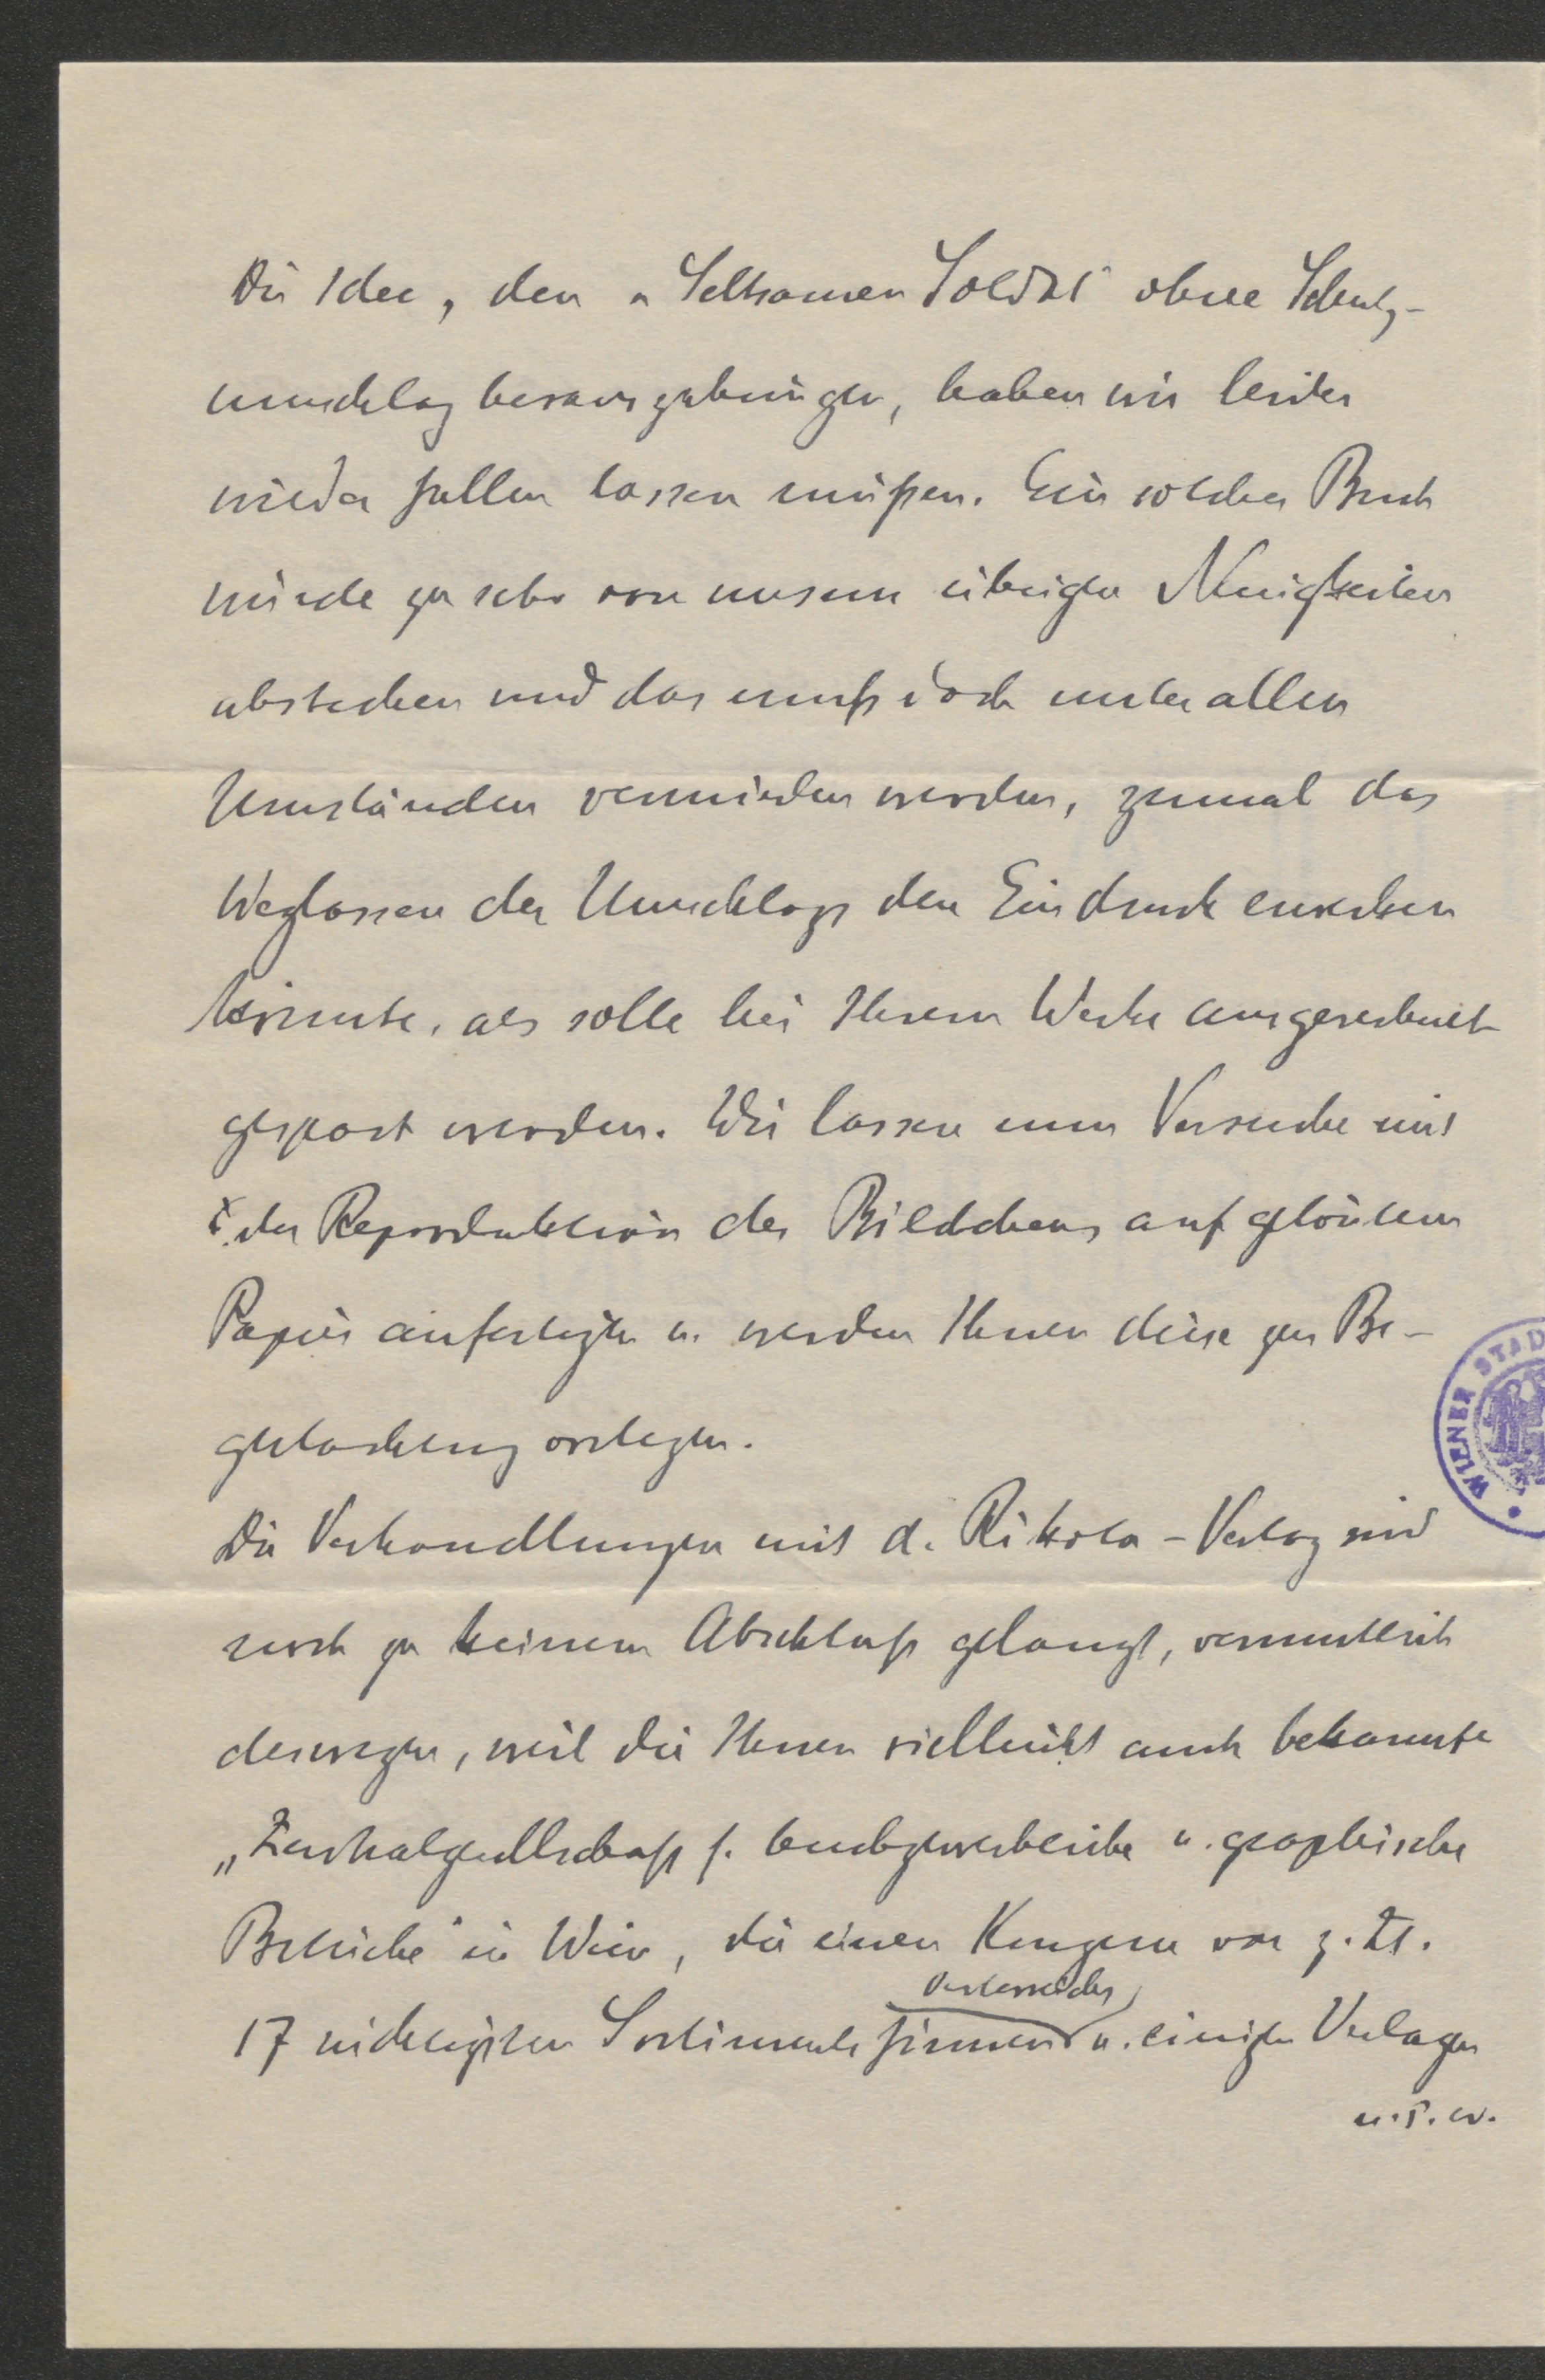 Die Idee, den „Seltsamen Soldat" ohne Schutz-
umschlag herauszubringen, haben wir leider
wieder fallen lassen müßen. Ein solches Buch
würde zu sehr von unsern übrigen Neuigkeiten
abstechen und das muß doch unter allen
Umständen vermieden werden, zumal das
Weglassen des Umschlags den Eindruck erwecken
könnte, als solle bei Ihrem Werke ausgerechnet
gespart werden. Wir lassen nun Versuche mit
der Reproduktion des Bildchens auf getöntem
Papier anfertigen u. werden Ihnen diese zur Be-
gutachtung vorlegen.
Die Verhandlungen mit d. Rikola-Verlag sind
noch zu keinem Abschluß gelangt, vermutlich
deswegen, weil die Ihnen vielleicht auch bekannte
„Zentralgesellschaft f. buchgewerbliche u. graphische
Betriebe" in Wien, die einen Konzern von z. Zt.
Österreichs
17 wichtigsten Sortimentsfirmen u. einigen Verlagen
u.s.w.
WIENER STAD